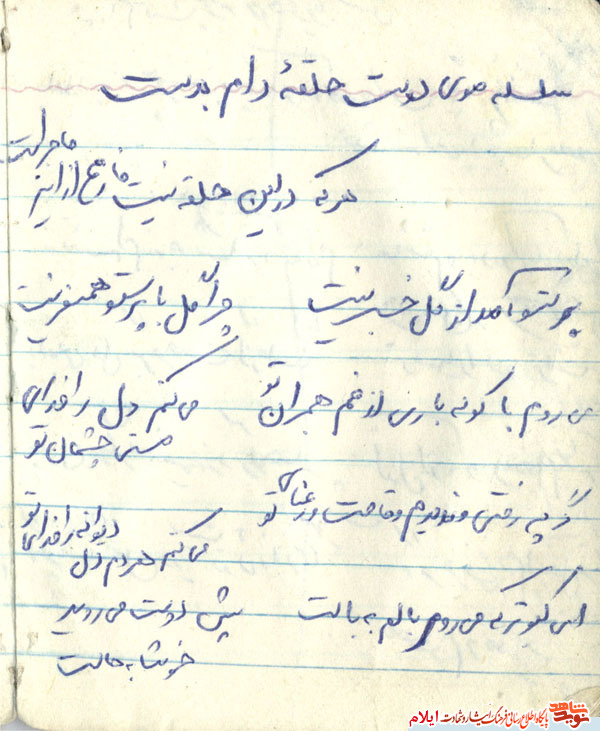 سلسله موی دوست حلقهٔ دام بلاست
هر که در این حلقه نیست فارغ از این
ماجراست
پرستو آمد از گل خبر نیست چرا گل با پرستو همسفر نیست
می روم با کوله باری از غم هجران تو می کنم دل را فدای
مستی چشمان تو
گرچه رفتی و ندیدم قامت رعنای تو
می کنم هر دم دل دیوانه را فدای تو
ای کبوتر که می روی بالم به بالت پیش دوست می روید
خوشا به حالت
نوید شاهد
پایگاه اطلاع رسانی فرهنگ ایثار و شهادت ایلام